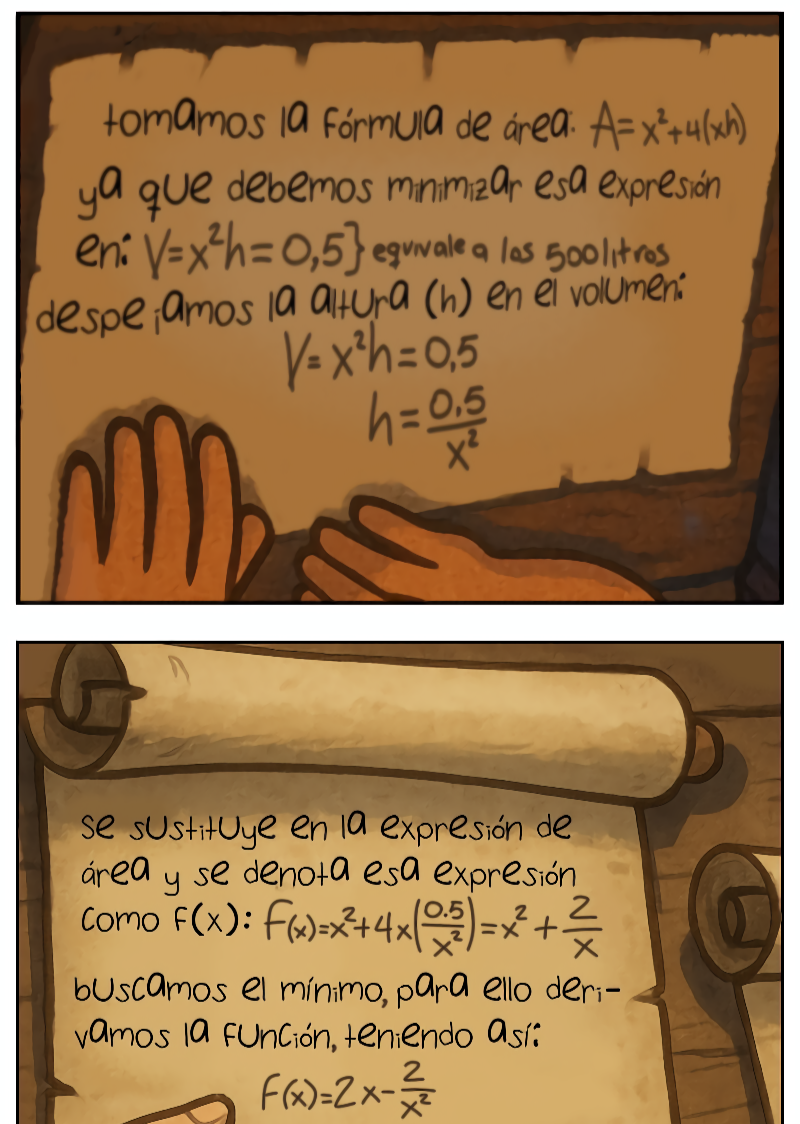 tomamos la fórmula de área: A=x²+4(xh)
ya que debemos minimizar esa expresión
en: V=x²h=0,5} equivale a los 500 litros
despejamos la altura (h) en el volumen:
V=x²h=0,5
h=0,5/x²
Se sustituye en la expresión de
área y se denota esa expresión
como f(x): f(x)=x²+4x(0.5/x²)=x²+2/x
buscamos el mínimo, para ello deri-
vamos la función, teniendo así:
f(x)=2x-2/x²